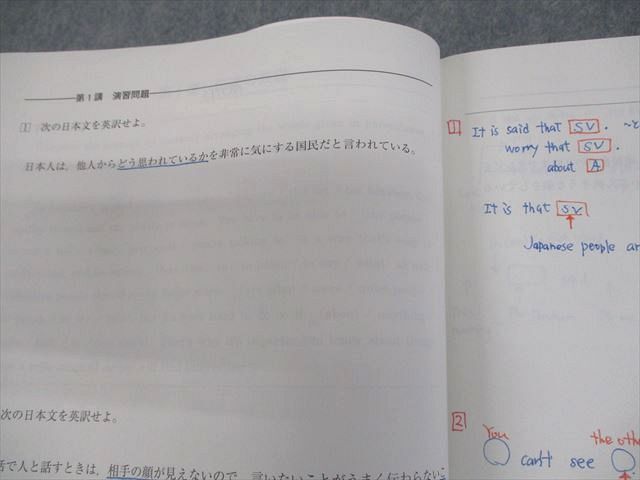 第1講 演習問題
1 次の日本文を英訳せよ。
日本人は，他人からどう思われているかを非常に気にする国民だと言われている。
次の日本文を英訳せよ。
話で人と話すときは，相手の顔が見えないので，言いたいことがうまく伝わらない
1 It is said that SV. ~と
worry that SV.
about A
It is that SV
Japanese people ar
2
You
the othe
can't see